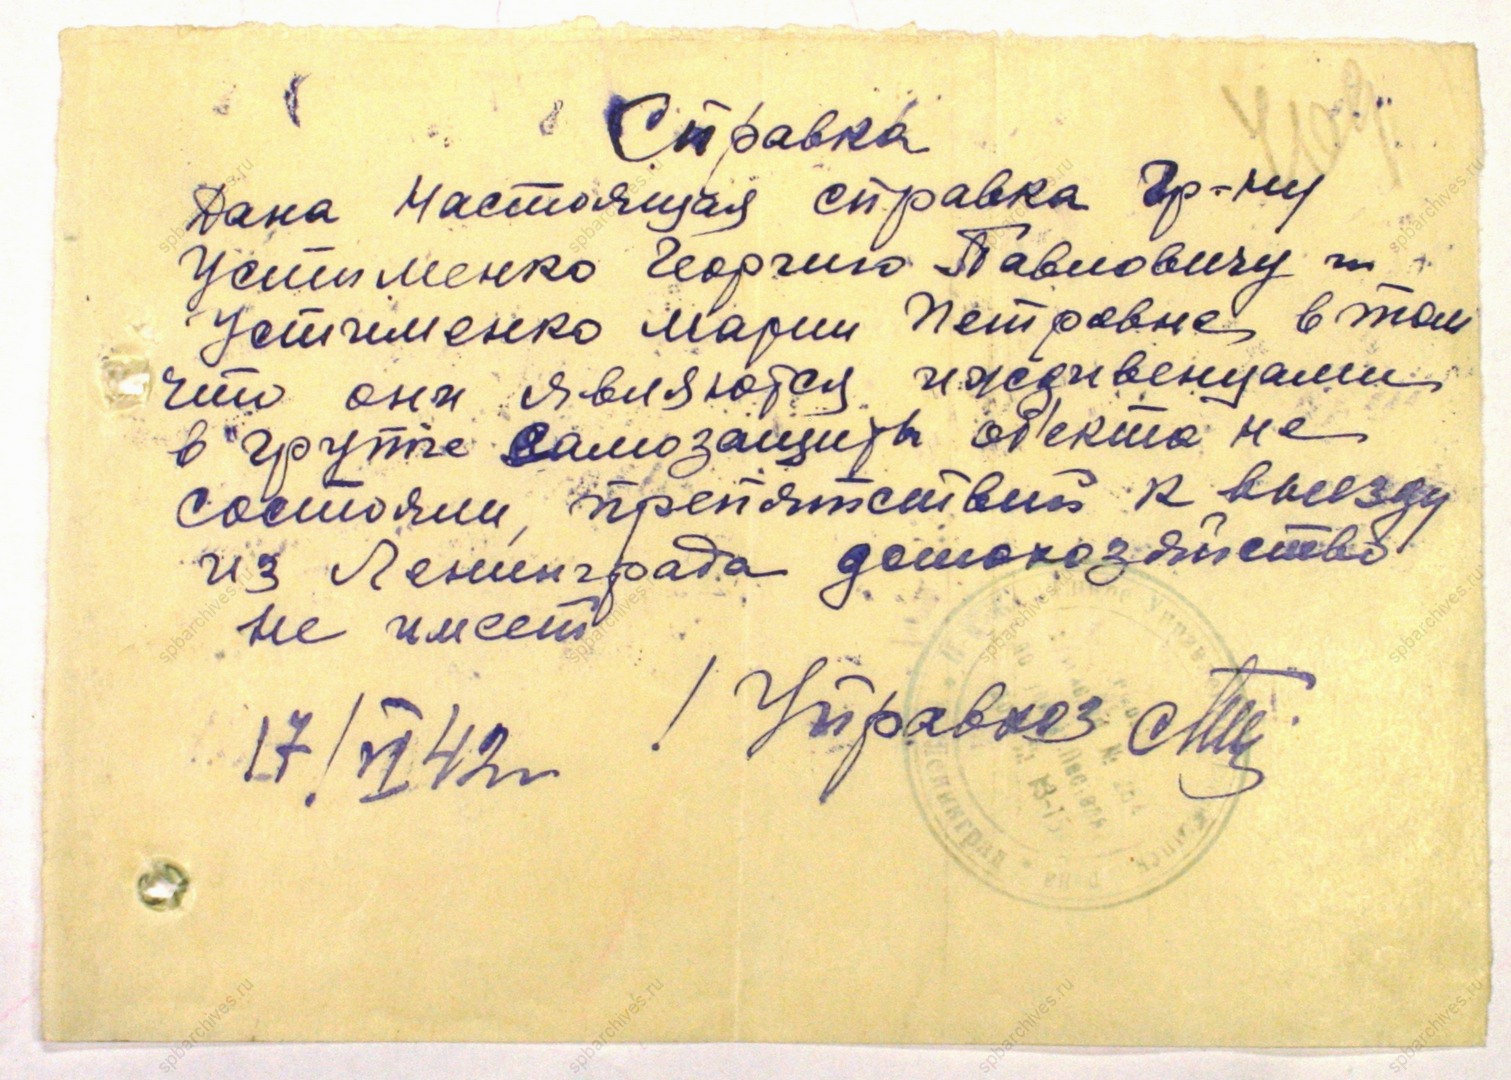 Справка
Дана Настоящая справка Гр-ну
Устименко Георгию Павловичу и
Устименко Марии Петровне в том
что они являются иждивенцами
в групе самозащиты об'екта не
состояли, препятствий к выезду
из Ленинграда домохозяйство
не имеет
17/VI 42 г. Управхоз
Ленинград